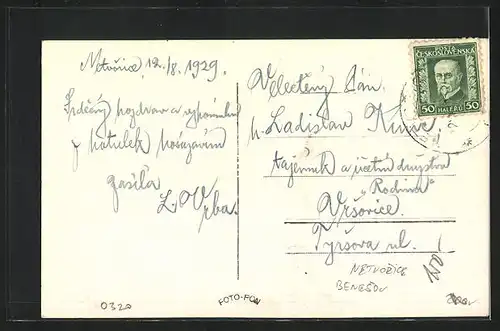 Netvořice, 12./8. 1929.
Srdečný pozdrav a vzpomínku
z
zasílá
L. Vrba.
POŠTA
ČESKOSLOVENSKÁ
50 HALÉŘŮ 50
Velectěný Pán,
p. Ladislav
tajemník a účetní družstva
„Rodina“
Vršovice.
Tyršova ul.
NETVOŘICE
BENEŠOV
0320
FOTO-FON